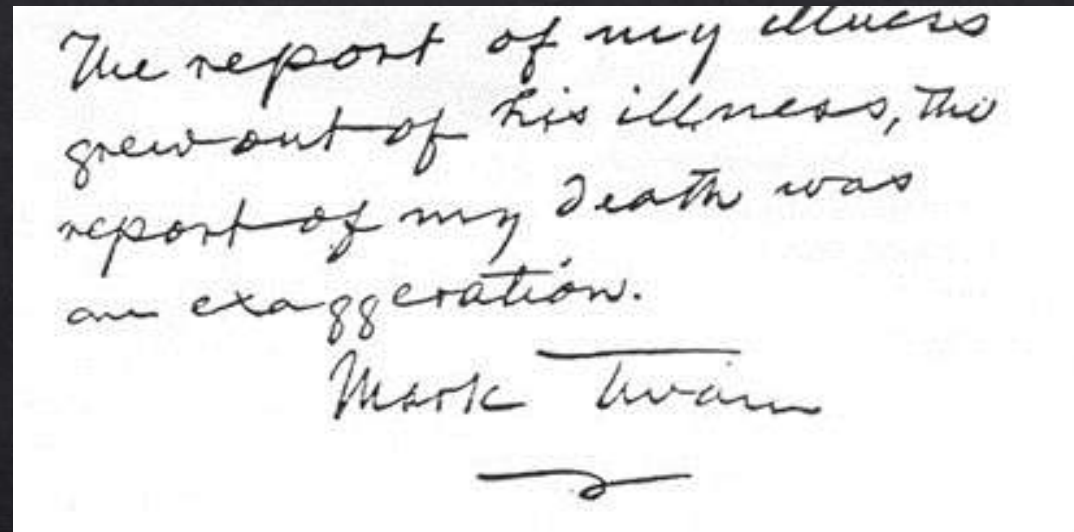 The report of my illness
grew out of his illness, the
report of my death was
an exaggeration.
Mark Twain